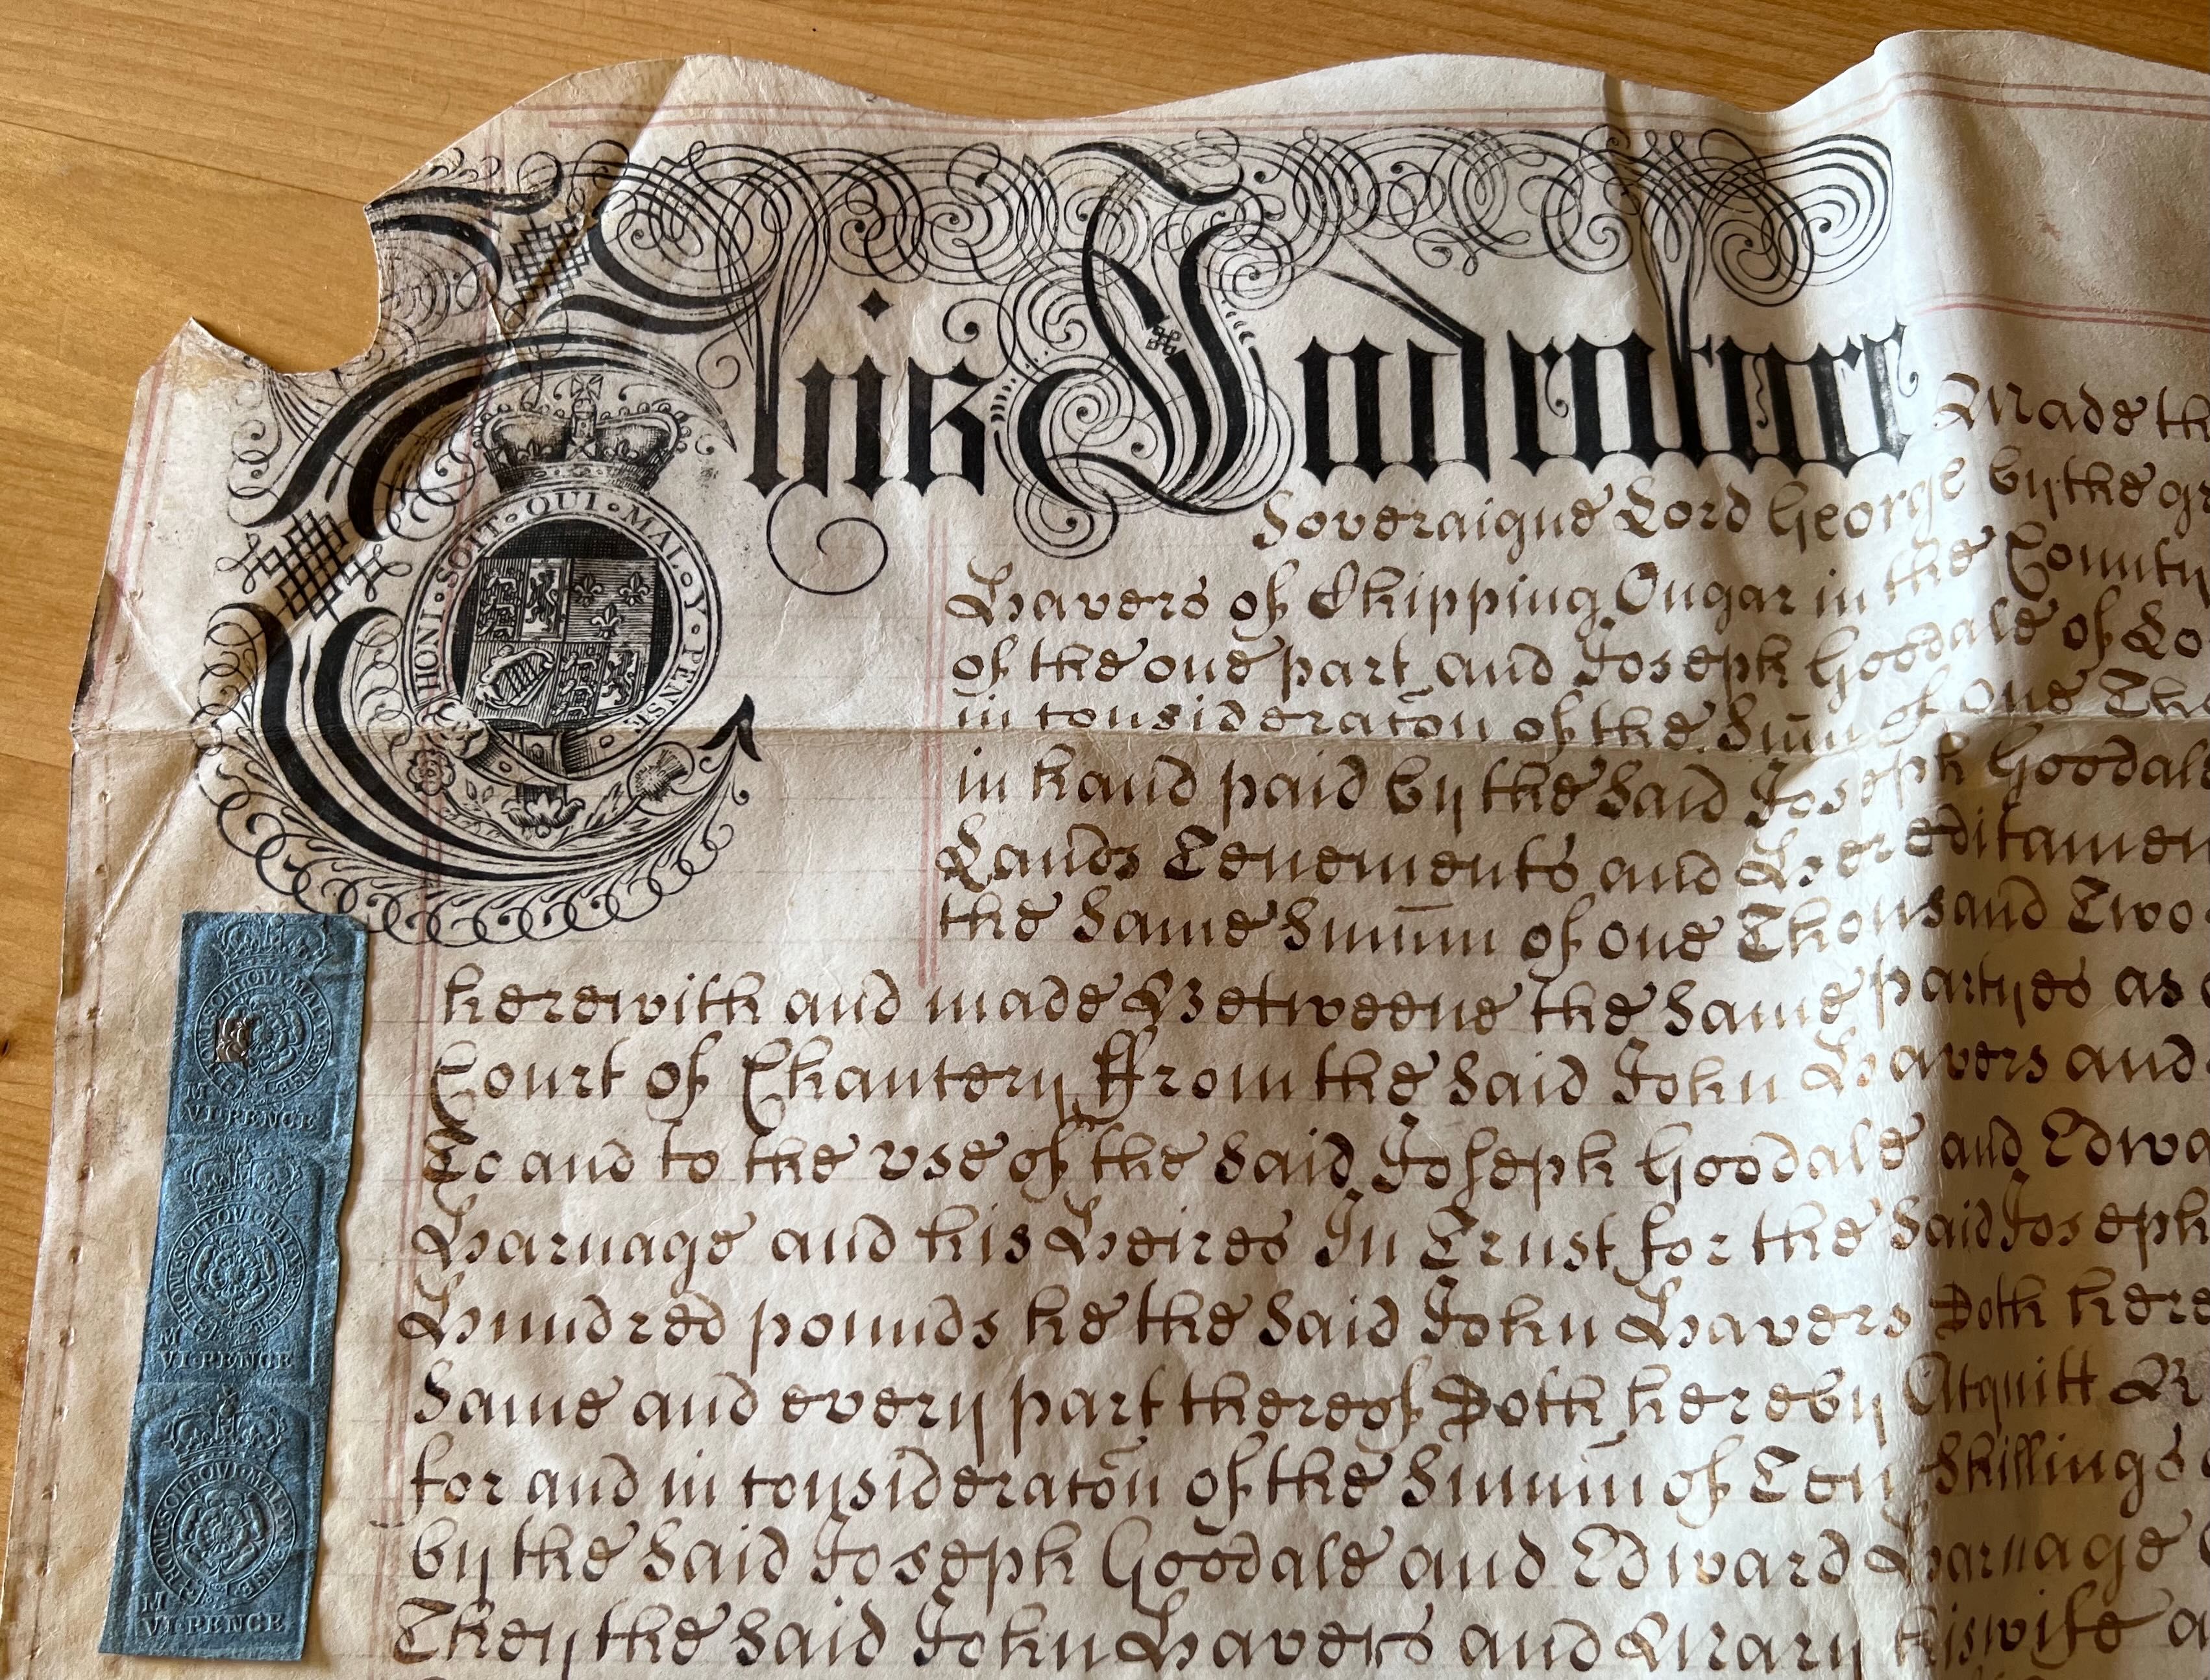 This Indenture Made th
Soveraigne Lord George by the gr
Havers of Chipping Ongar in the County
of the one part and Joseph Goodale of Lo
in consideratōn of the Sum̄ of one Tho
in hand paid by the Said Joseph Goodale
Lands Tenements and Hereditamen
the Same Sum̄m of one Thousand Two
herewith and made Betweene the Same partyes as
Court of Chancery From the Said John Havers and
To and to the vse of the Said Joseph Goodale and Edwa
Harnage and his Heires In Trust for the Said Joseph
Hundred pounds he the Said John Havers Doth here
Same and every part thereof Doth hereby Acquitt R
for and in consideratōn of the Summ̄ of Ten Shillings
by the Said Joseph Goodale and Edward Harnage
They the Said John Havers and Mary his wife a
HONI · SOIT · QUI · MAL · Y · PENSE
HONI SOIT QVI MAL Y PENSE
M
VI·PENCE
HONI SOIT QVI MAL Y PENSE
M
VI·PENCE
HONI SOIT QVI MAL Y PENSE
M
VI·PENCE